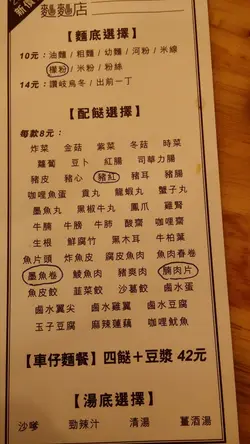 新價
麵麵店
【麵底選擇】
10元：油麵 / 粗麵 / 幼麵 / 河粉 / 米線
粿粉 / 米粉 / 粉絲
14元：讚岐烏冬 / 出前一丁
【配餸選擇】
每款8元：
炸菜 金菇 紫菜 冬菇 時菜
蘿蔔 豆卜 紅腸 司華力腸
豬皮 豬心 豬紅 豬耳 豬腸
咖哩魚蛋 貢丸 龍蝦丸 蟹子丸
墨魚丸 黑椒牛丸 鳳爪 雞腎
牛腩 牛膀 牛肺 酸齋 咖哩齋
生根 鮮腐竹 黑木耳 牛柏葉
魚片頭 炸魚皮 腐皮魚肉 魚肉春卷
墨魚卷 鯪魚肉 豬爽肉 腩肉片
魚皮餃 韮菜餃 沙葛餃 鹵水蛋
鹵水翼尖 鹵水雞翼 鹵水豆腐
玉子豆腐 麻辣蓮藕 咖哩魷魚
【車仔麵餐】四餸＋豆漿 42元
【湯底選擇】
沙嗲 勁辣汁 清湯 薑酒湯